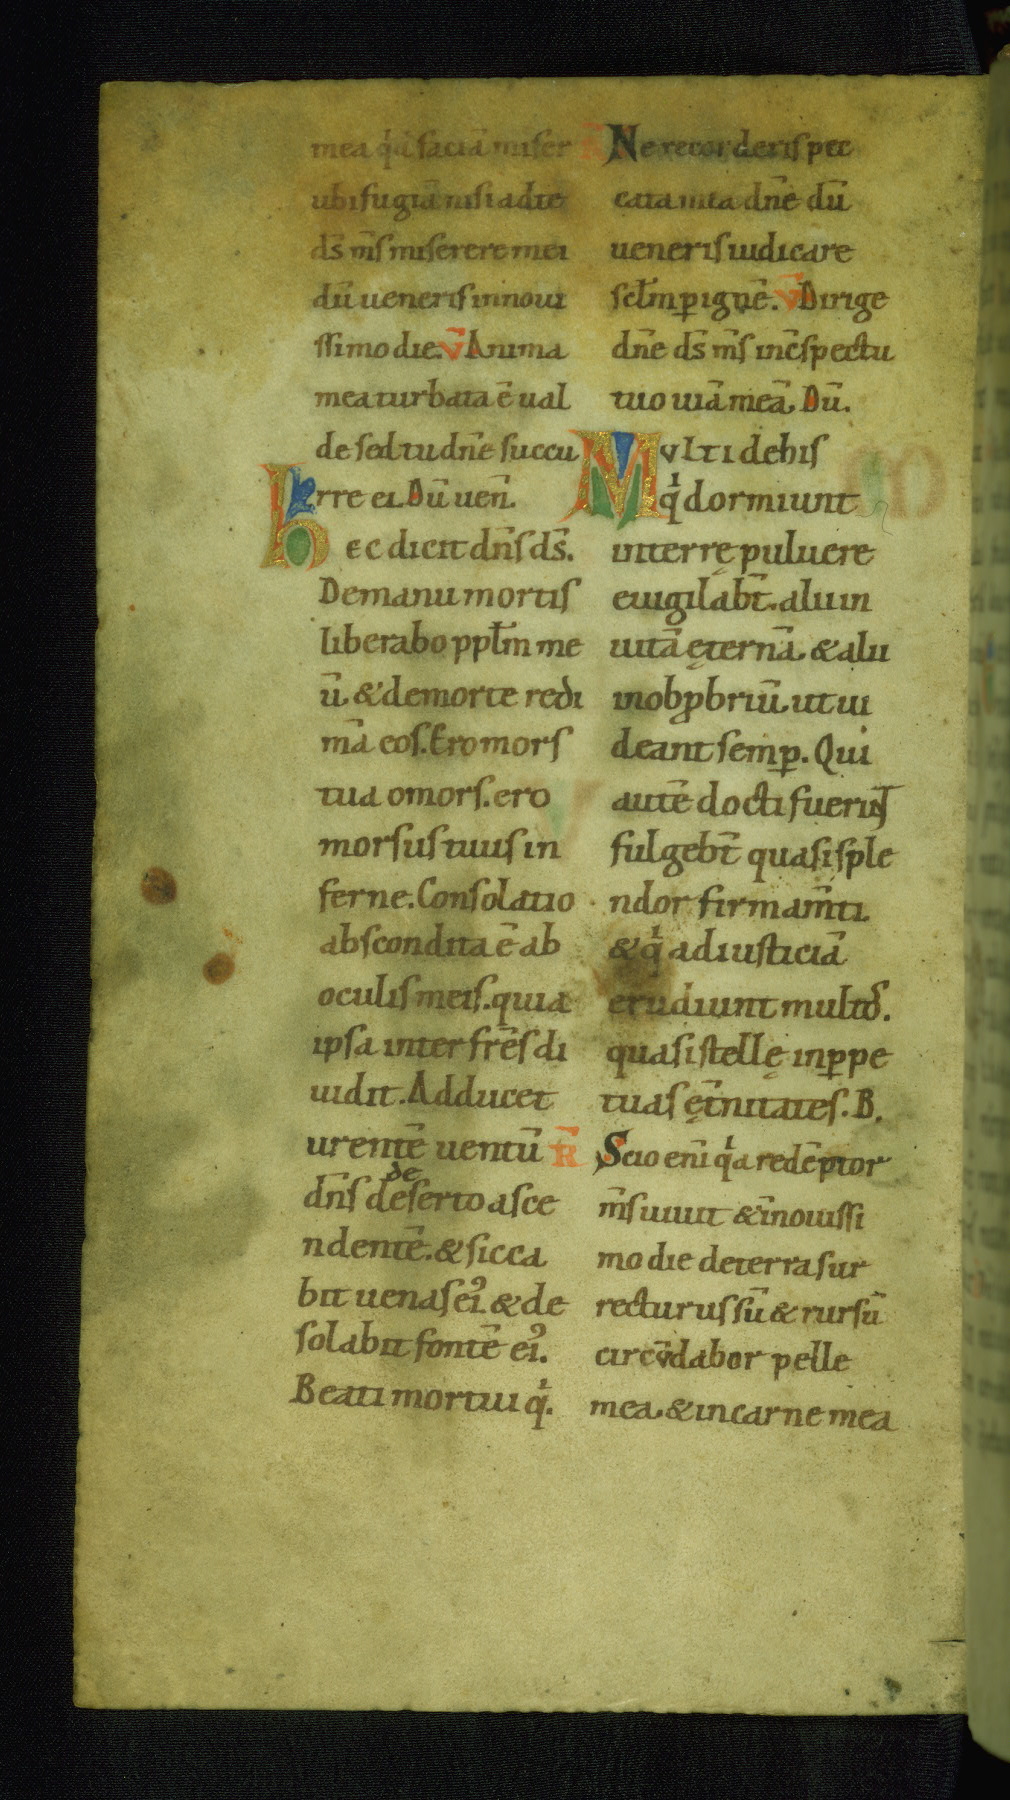 mea q̇d faciā miser
ubi fugiā nisi ad te
ds̄ ms̄ miserere mei
dū ueneris in noui
ssimo die. V̄ Anima
mea turbata ē ual
de sed tu dn̄e succu
rre ei. Dū uen̄.
Hec dicit dn̄s ds̄.
De manu mortis
liberabo ppl̄m me
ū & de morte redi
mā eos. Ero mors
tua o mors. ero
morsus tuus in
ferne. Consolatio
abscondita ē ab
oculis meis. quia
ipsa inter frēs di
uidit. Adducet
urentē uentū
dn̄s de deserto asce
ndentē. & sicca
bit uenas ei᾿. & de
solabit fontē ei᾿.
Beati mortui q̇.
R̄ Ne recorderis pec
cata mea dn̄e dū
ueneris iudicare
scl̄m ꝑ ignē. V̄ Dirige
dn̄e ds̄ ms̄ in c̄spectu
tuo uiā meā. Dū.
Multi de his
q̇ dormiunt
in terrę puluere
euigilabt̄. alii in
uitā ęternā. & alii
in obꝓbriū. ut ui
deant semꝑ. Qui
autē docti fuerint
fulgebt̄ quasi sple
ndor firmam̄ti.
& q̇ ad iusticiā
erudiunt multos.
quasi stellę in ꝑpe
tuas ęt̄nitates. B.
R̄ Scio eni̅ q̇a redēptor
ms̄ uiuit & i̅ nouissi
mo die de terra sur
recturus sū & rursū
circūdabor pelle
mea. & in carne mea